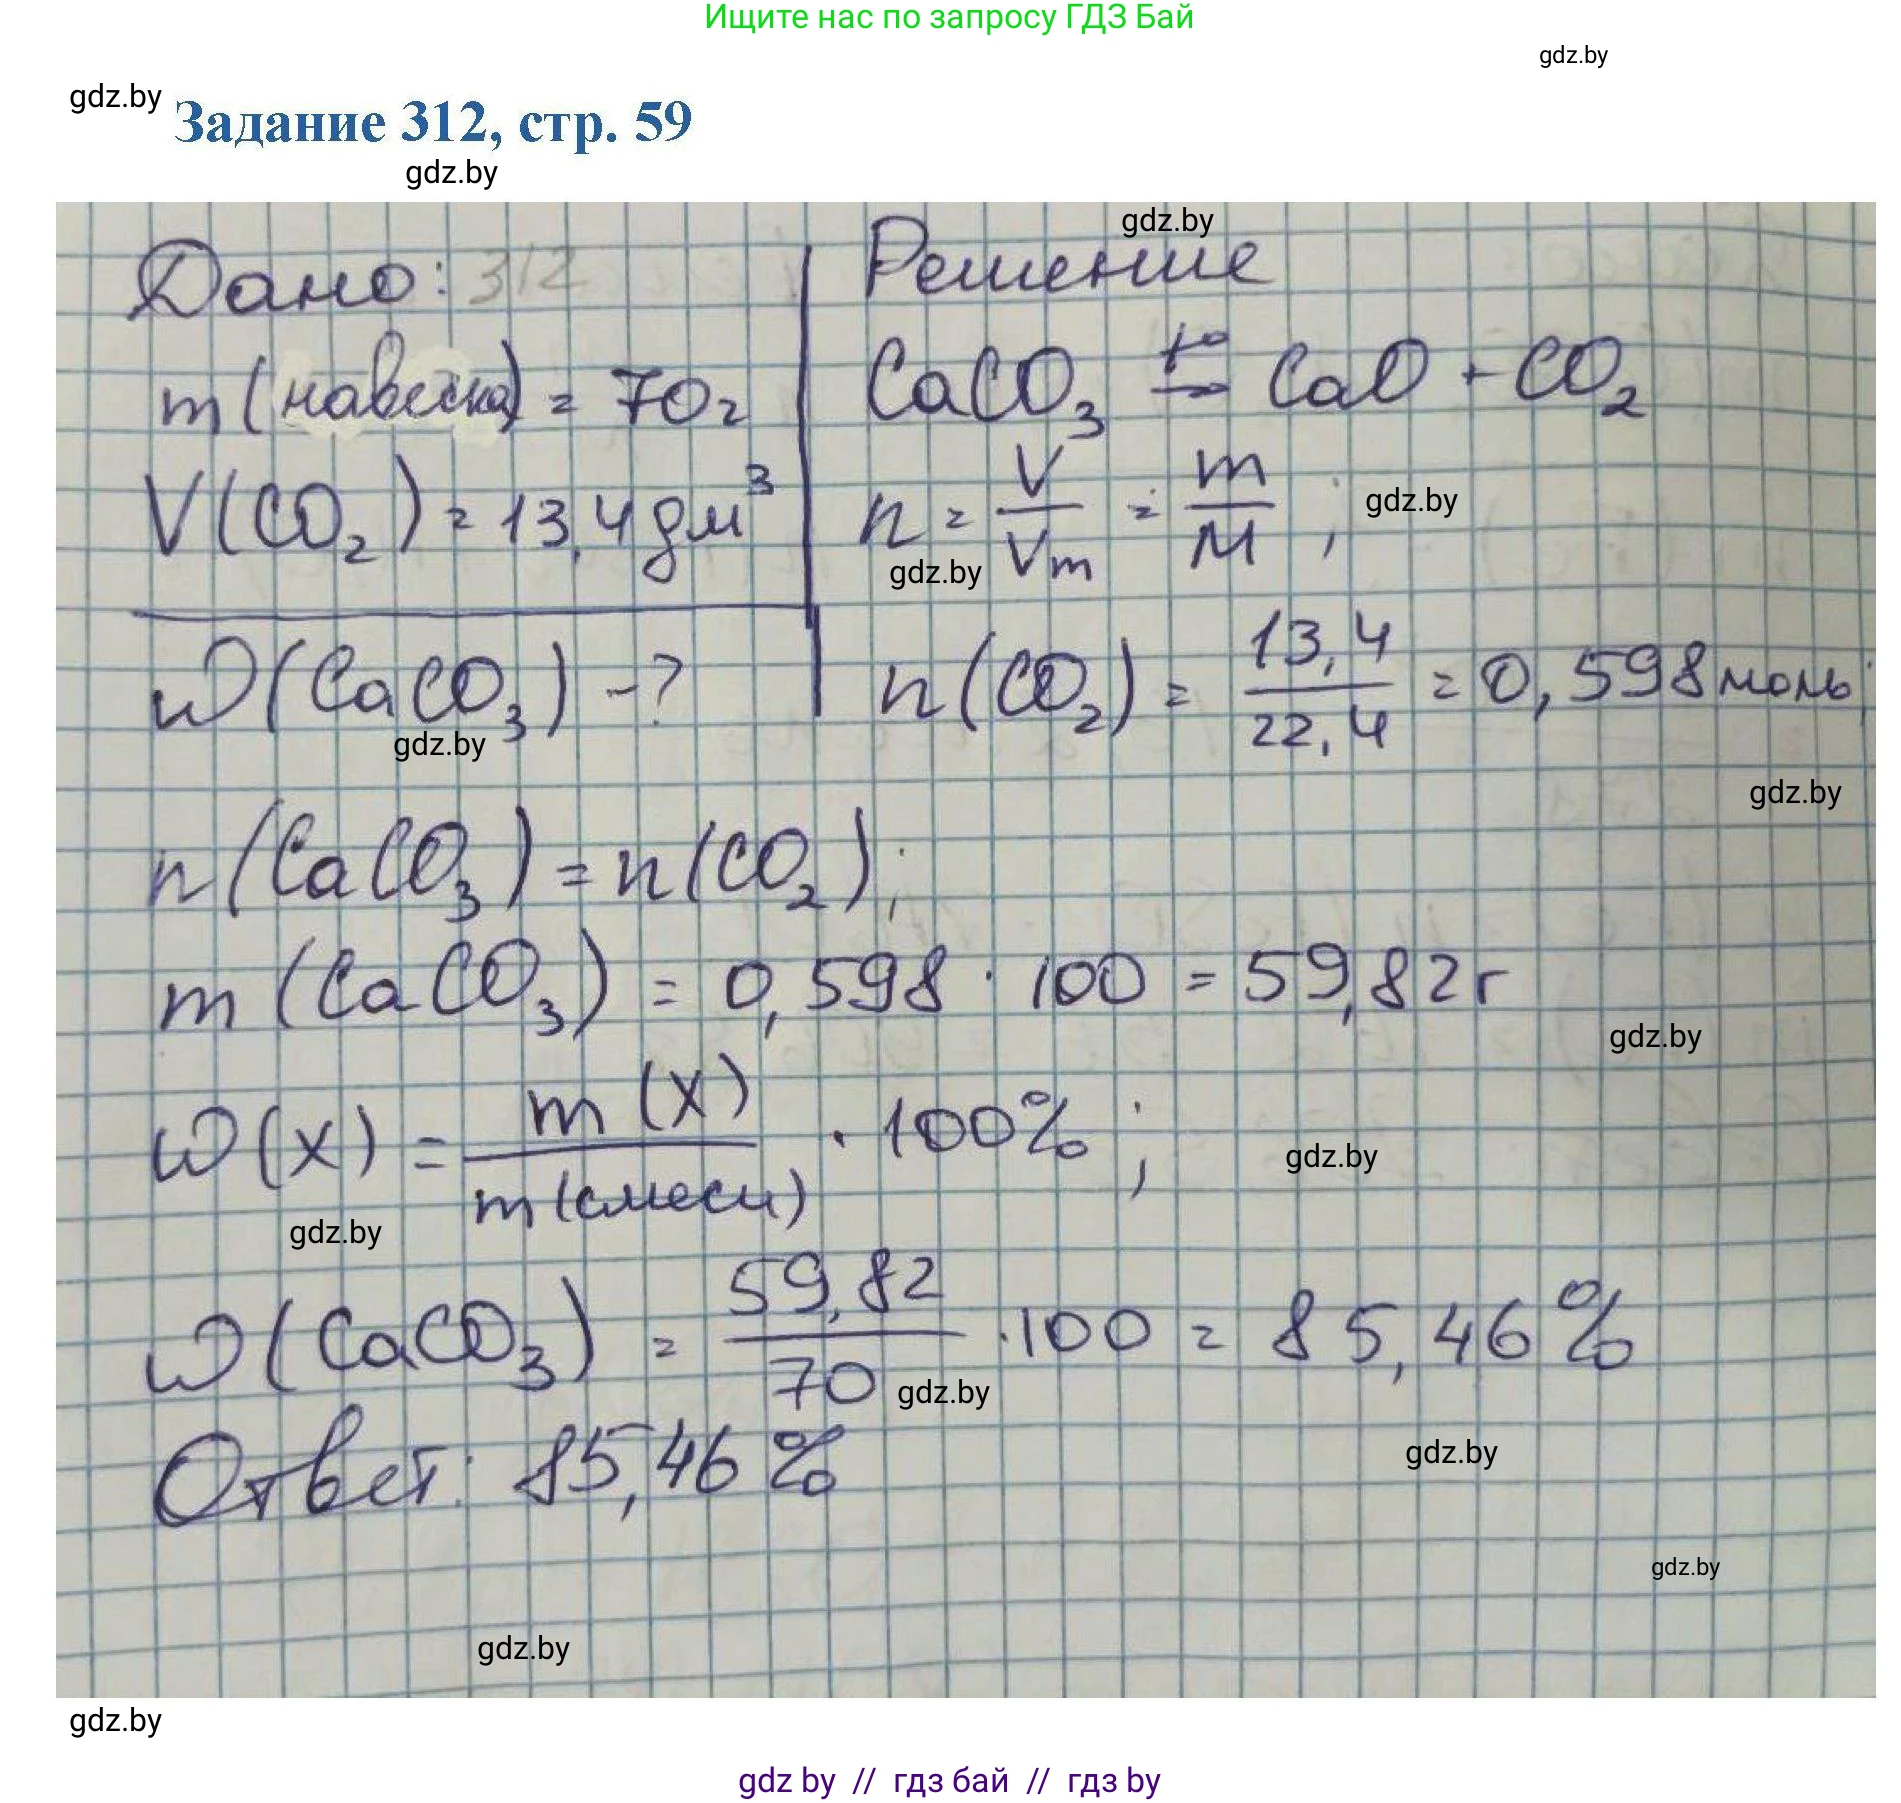 Ищите нас по запросу ГДЗ Бай
gdz.by
gdz.by
Задание 312, стр. 59
gdz.by
gdz.by
Дано: 312
Решение
m(навеска) = 70г
CaCO₃ t°⇄ CaO + CO₂
V(CO₂) = 13,4 дм³
n = V/Vm = m/M ;
gdz.by
gdz.by
W(CaCO₃) -?
n(CO₂) = 13,4/22,4 = 0,598 моль;
gdz.by
gdz.by
n(CaCO₃) = n(CO₂);
m(CaCO₃) = 0,598 · 100 = 59,82 г
gdz.by
W(X) = m(X)/m(смеси) · 100%;
gdz.by
gdz.by
W(CaCO₃) = 59,82/70 · 100 = 85,46%
gdz.by
Ответ: 85,46%
gdz.by
gdz.by
gdz.by
gdz.by
gdz by // гдз бай // гдз by